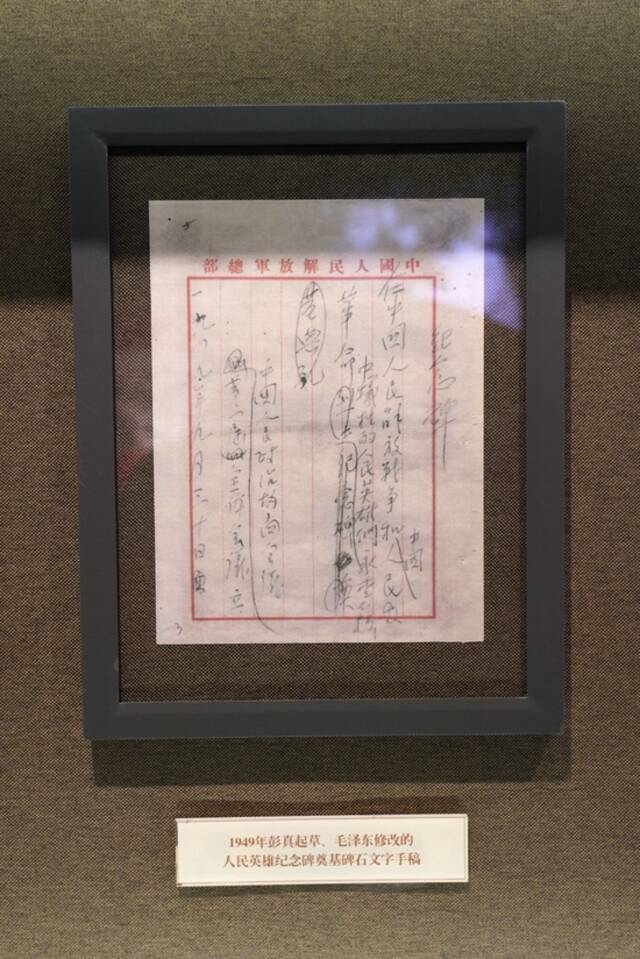 中國人民解放軍總部
紀念碑
在中国人民解放戰争和人民
中国
犧牲的人民英雄們永垂不朽
革命
中国人民政治协商会议
全体会议立
一九四九年九月三十日
3
1949年彭真起草、毛泽东修改的
人民英雄纪念碑奠基碑石文字手稿